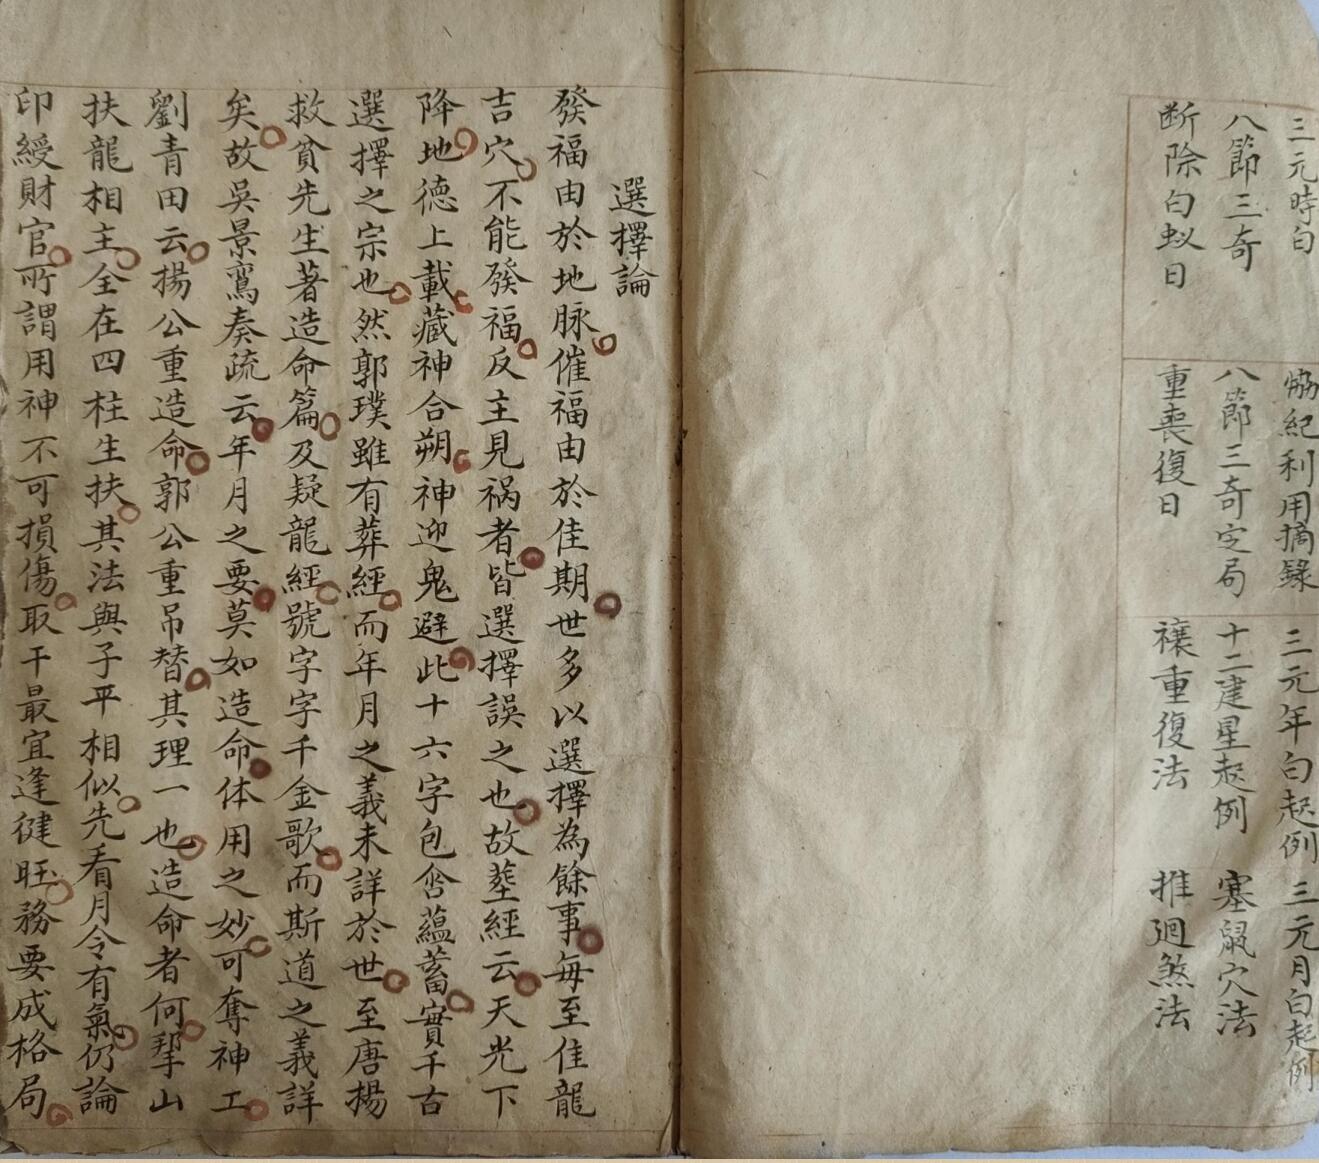 三元時白 恊紀利用摘錄 三元年白起例 三元月白起例
八節三奇 八節三奇定局 十二建星起例 塞鼠穴法
断除白蚁日 重喪復日 禳重復法 推廻煞法
選擇論
發福由於地脉催福由於佳期世多以選擇為餘事每至佳龍
吉穴不能發福反主見祸者皆選擇誤之也故塟經云天光下
降地德上載藏神合朔神迎鬼避此十六字包含蘊蓄實千古
選擇之宗也然郭璞雖有葬經而年月之義未詳於世至唐揚
救貧先生著造命篇及疑龍經號字字千金歌而斯道之義詳
矣故吳景鸞奏疏云年月之要莫如造命体用之妙可奪神工
劉青田云揚公重造命郭公重吊替其理一也造命者何挈山
扶龍相主全在四柱生扶其法與子平相似先看月令有氣仍論
印綬財官所謂用神不可損傷取干最宜逢健旺務要成格局